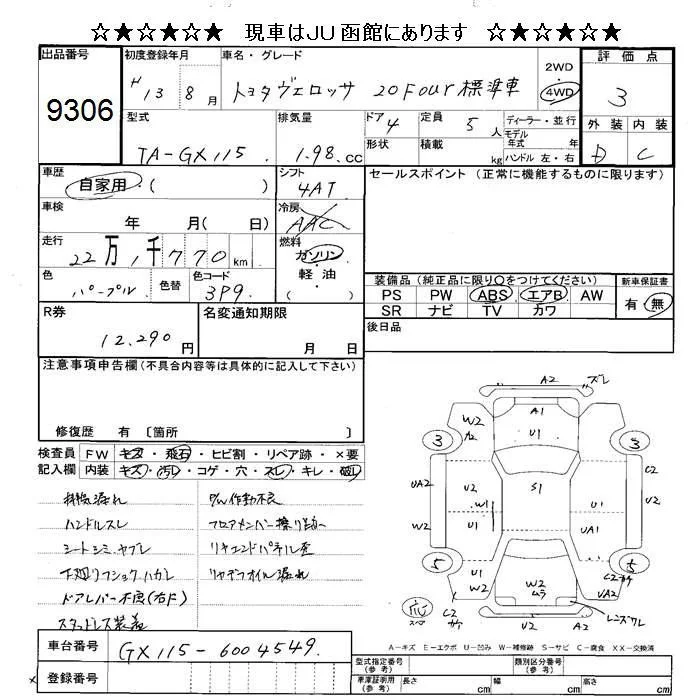 ☆★☆★☆★ 現車はJU函館にあります ☆★☆★☆★
出品番号 9306
初度登録年月 H 13 8月
車名・グレード トヨタヴェロッサ 20Four 標準車
2WD・4WD
評価点 3
型式 TA-GX115
排気量 1.98 cc
ドア 4
定員 5 人
形状
積載 kg
ディーラー・並行
モデル年式 年式
ハンドル 左・右
外装 D
内装 C
車歴 自家用・( )
シフト 4AT
セールスポイント (正常に機能するものに限ります)
車検 年 月( 日)
冷房 AAC
走行 22万 千770 km
燃料 ガソリン・軽油・( )
色 パープル
色替
色コード 3P9
装備品 (純正品に限り○をつけてください)
PS PW ABS エアB AW
SR ナビ TV カワ
新車保証書 有・無
R券 12,290円
名変通知期限 月 日
後日品
注意事項申告欄 (不具合内容等は具体的に記入して下さい)
修復歴 有 〔箇所 〕
検査員記入欄
FW キズ・飛石・ヒビ割・リペア跡・×要
内装 キズ・汚レ・コゲ・穴・スレ・キレ・破レ
ハンドルスレ
シートシミ ヤブレ
ドアレバー不良(右F)
スタッドレス装着
P/W作動不良
フロアメンバー擦り
リヤエンドパネル歪
リヤデフオイル漏れ
A2 ズレ
A1
U1
W2
A2
3
3
C2
UA2
U2
W1
S1
U1
U2
W2
U1
UA1
5
5
U1
W2
W2
ムラ
C2
UA2
C2
レンズワレ
U2
A2
応
スペア
A-キズ E-エクボ U-凹み W-補修跡 S-サビ C-腐食 XX-交換済
車台番号 GX115-6004549
× 登録番号
型式指定番号(参考)
類別区分番号(参考)
車庫証明用(参考) 長さ cm 幅 cm 高さ cm